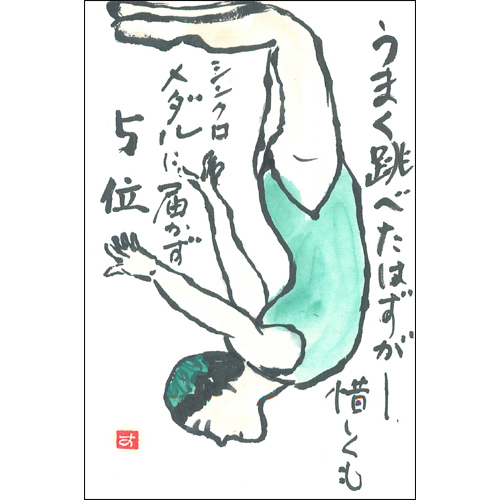 うまく跳べたはずがー、
惜しくも
シンクロ
メダルに届かず
5位
す